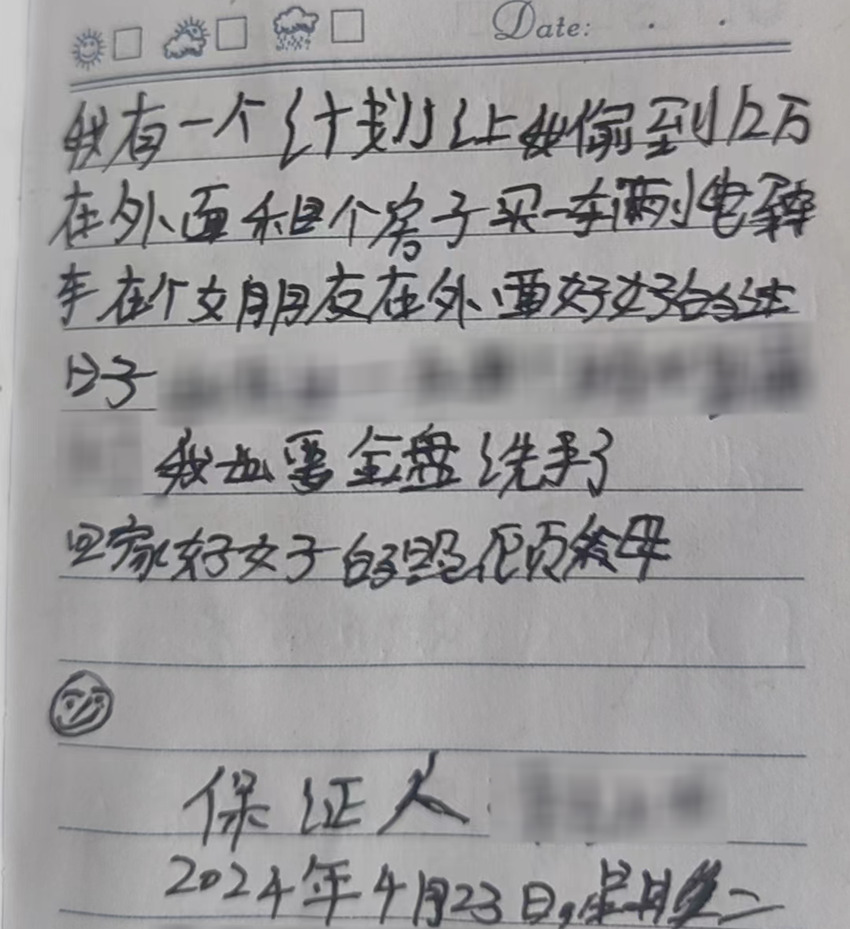 Date:
我有一个计划让我偷到12万
在外面租个房子买一车辆小电
车在个女朋友在外面好好
日子
我也要金盘洗手了
回家好好的照顾父母
保证人
2024年4月23日,星期二